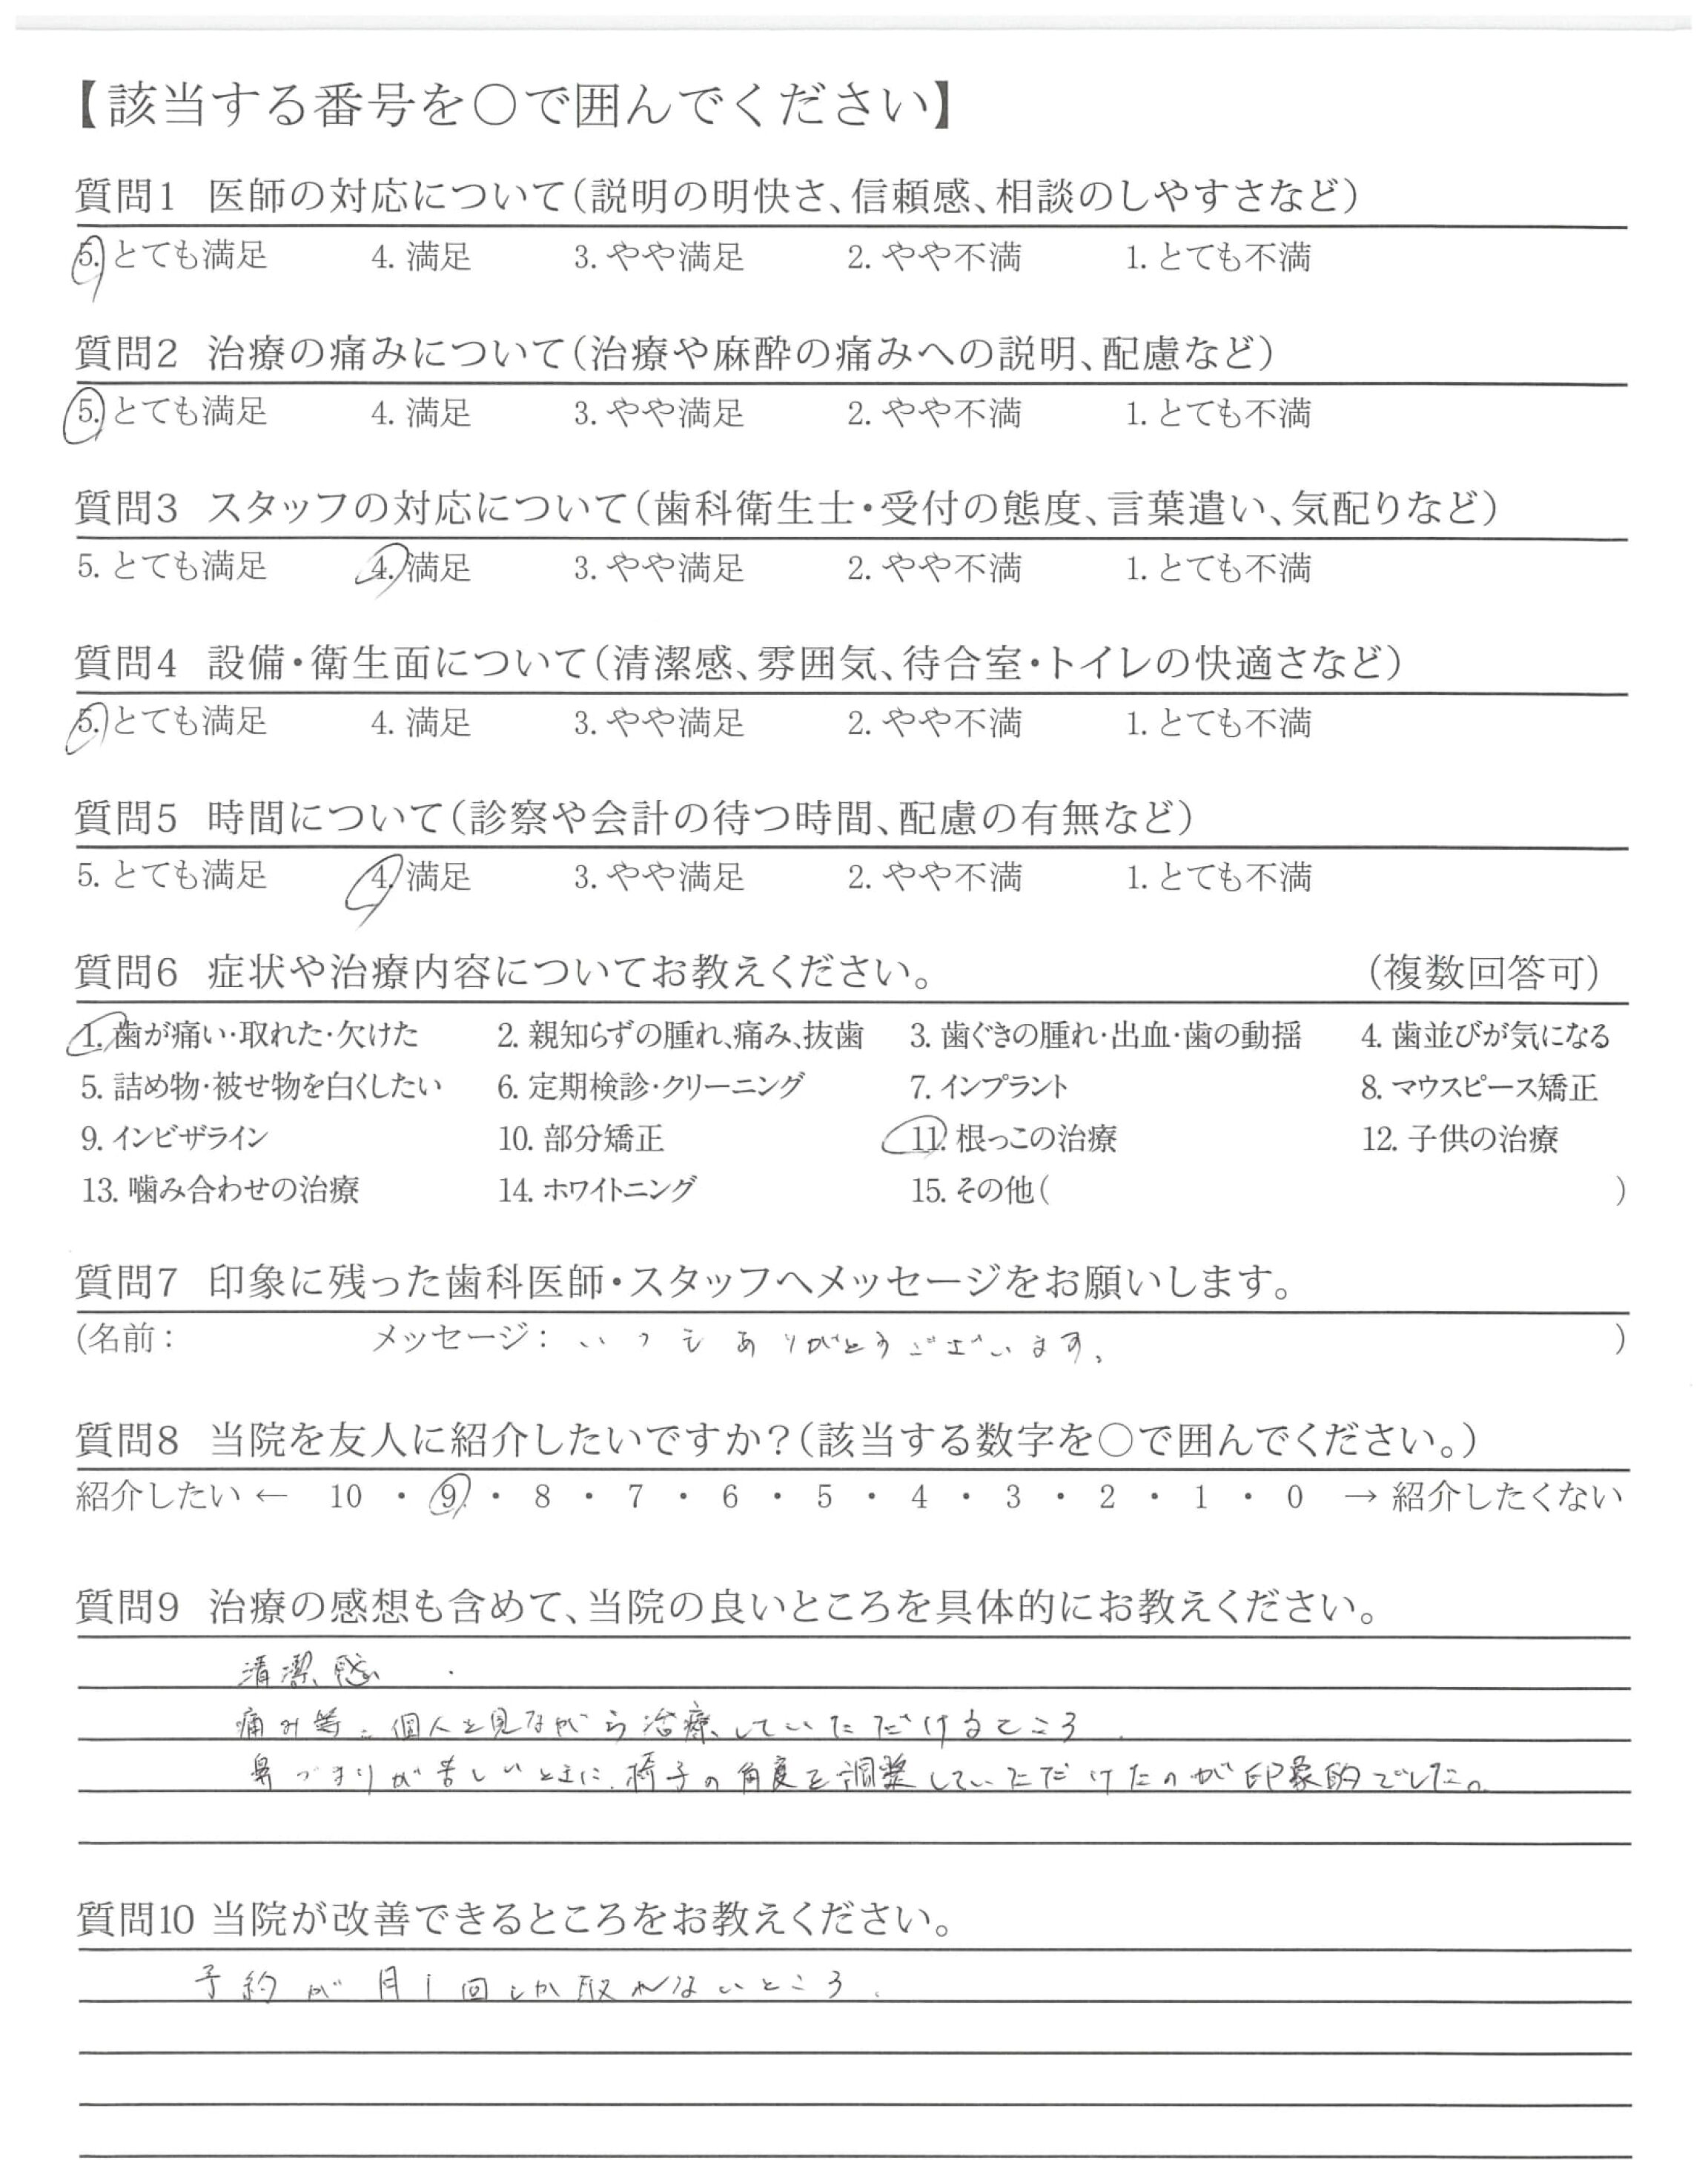 【該当する番号を○で囲んでください】
質問1 医師の対応について(説明の明快さ、信頼感、相談のしやすさなど)
5. とても満足 4. 満足 3. やや満足 2. やや不満 1. とても不満
質問2 治療の痛みについて(治療や麻酔の痛みへの説明、配慮など)
5. とても満足 4. 満足 3. やや満足 2. やや不満 1. とても不満
質問3 スタッフの対応について(歯科衛生士・受付の態度、言葉遣い、気配りなど)
5. とても満足 4. 満足 3. やや満足 2. やや不満 1. とても不満
質問4 設備・衛生面について(清潔感、雰囲気、待合室・トイレの快適さなど)
5. とても満足 4. 満足 3. やや満足 2. やや不満 1. とても不満
質問5 時間について(診察や会計の待つ時間、配慮の有無など)
5. とても満足 4. 満足 3. やや満足 2. やや不満 1. とても不満
質問6 症状や治療内容についてお教えください。 (複数回答可)
1. 歯が痛い・取れた・欠けた 2. 親知らずの腫れ、痛み、抜歯 3. 歯ぐきの腫れ・出血・歯の動揺 4. 歯並びが気になる
5. 詰め物・被せ物を白くしたい 6. 定期検診・クリーニング 7. インプラント 8. マウスピース矯正
9. インビザライン 10. 部分矯正 11. 根っこの治療 12. 子供の治療
13. 噛み合わせの治療 14. ホワイトニング 15. その他( )
質問7 印象に残った歯科医師・スタッフへメッセージをお願いします。
(名前： メッセージ： いつもありがとうございます。 )
質問8 当院を友人に紹介したいですか？(該当する数字を○で囲んでください。)
紹介したい ← 10 ・ 9 ・ 8 ・ 7 ・ 6 ・ 5 ・ 4 ・ 3 ・ 2 ・ 1 ・ 0 → 紹介したくない
質問9 治療の感想も含めて、当院の良いところを具体的にお教えください。
清潔感
痛み等、個人を見ながら治療していただけるところ
鼻づまりが苦しいときに、椅子の角度を調整していただけたのが印象的でした。
質問10 当院が改善できるところをお教えください。
予約が月1回しか取れないところ、